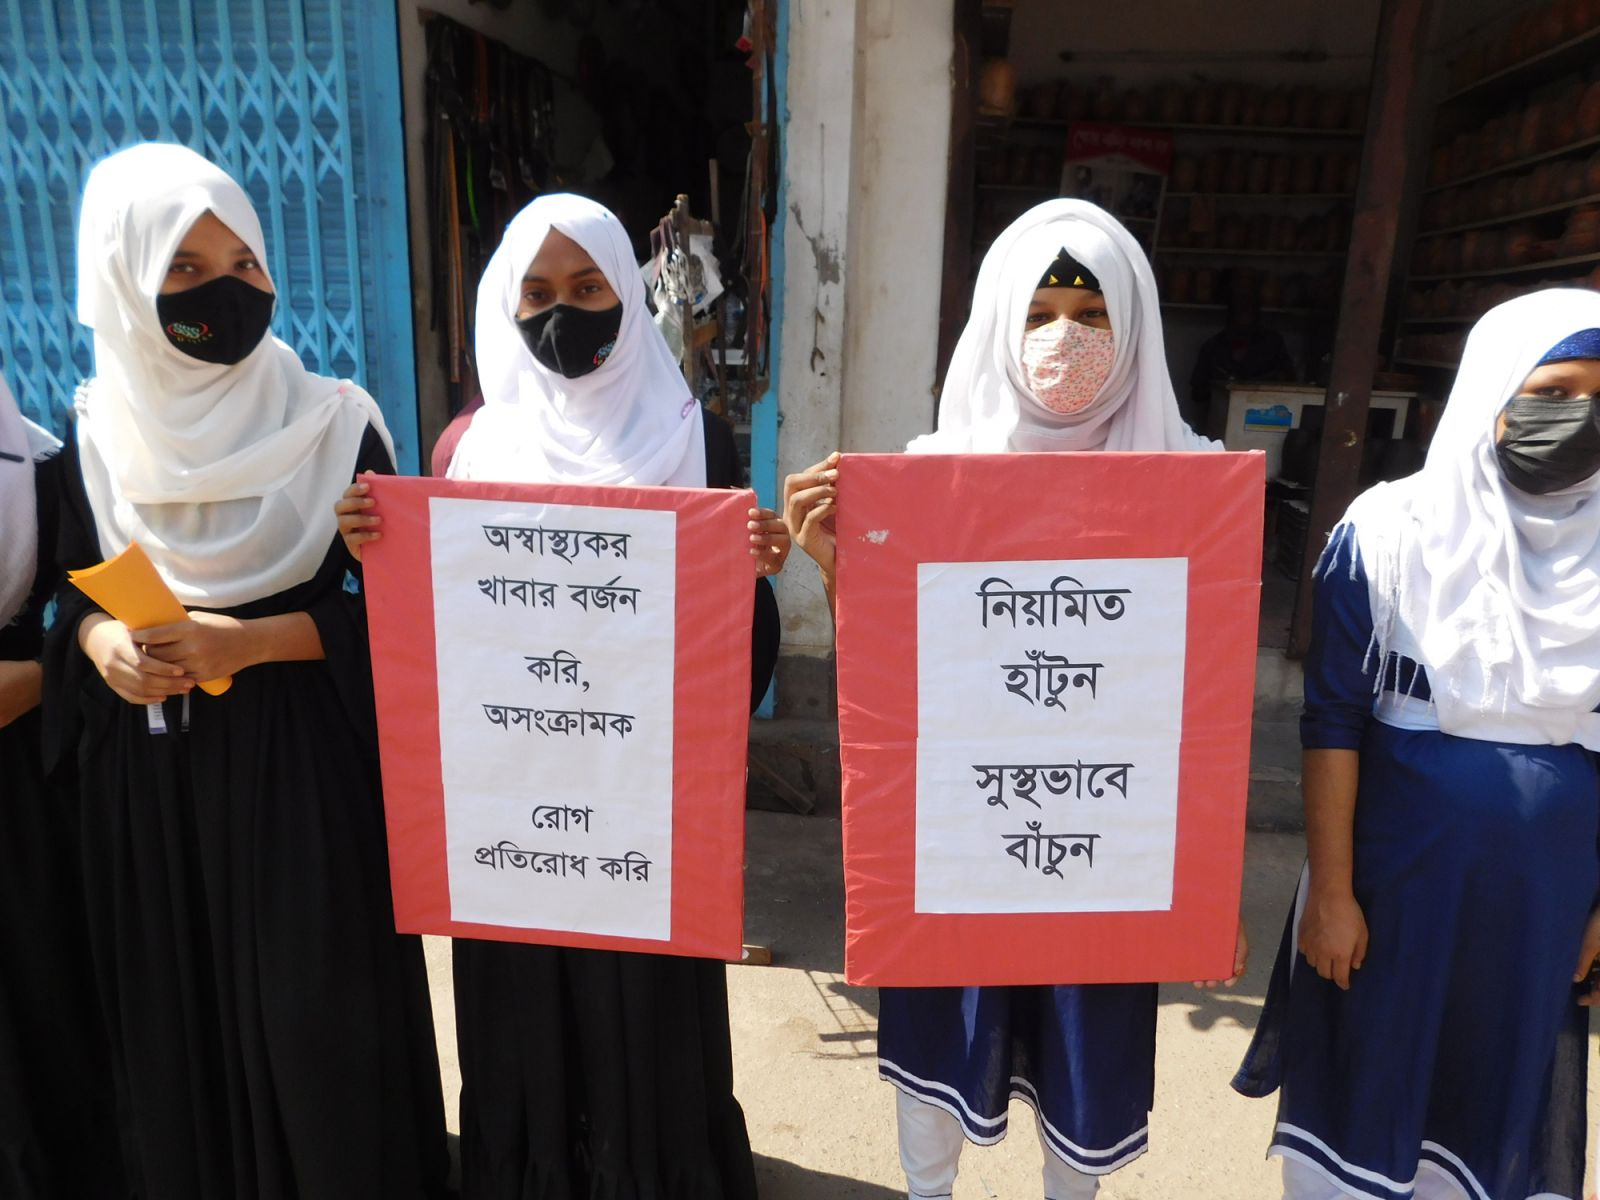 অস্বাস্থ্যকর
খাবার বর্জন
করি,
অসংক্রামক
রোগ
প্রতিরোধ করি
নিয়মিত
হাঁটুন
সুস্থভাবে
বাঁচুন